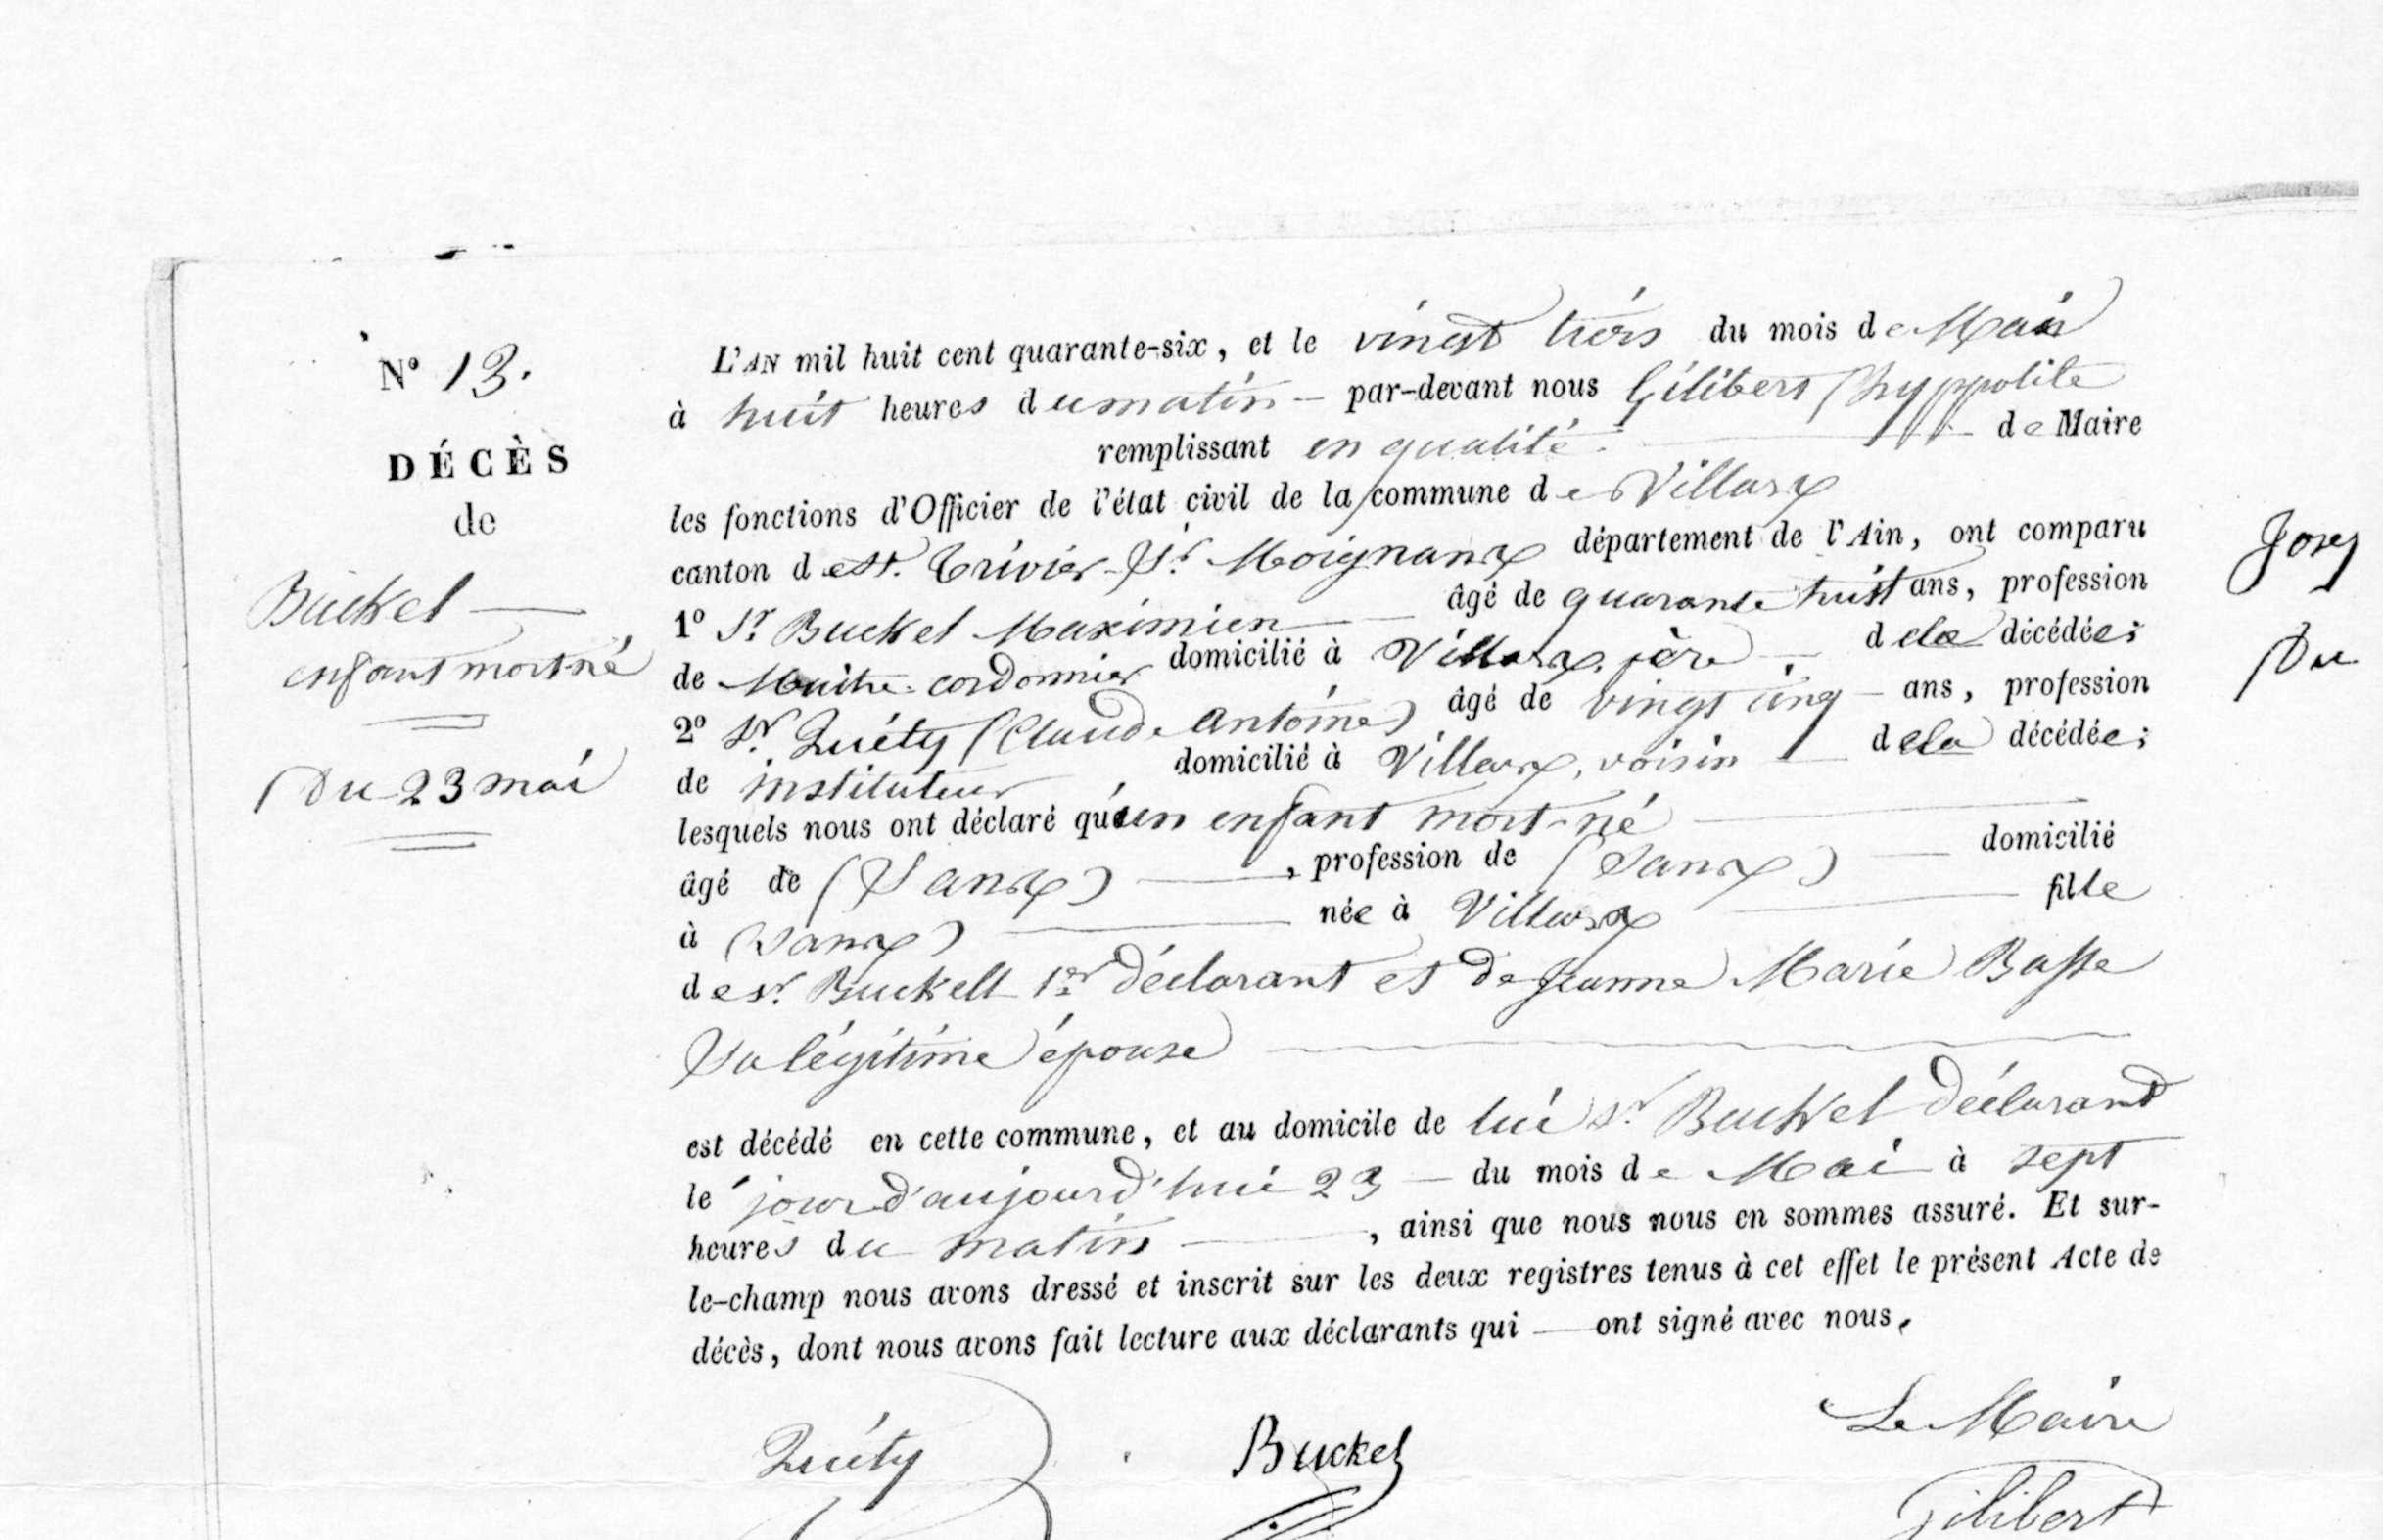 N° 13.
DÉCÈS
de
Buckel
enfant mort né
Du 23 mai
L'AN mil huit cent quarante-six, et le vingt trois du mois de Mai
à huit heures du matin — par-devant nous Gilibert (hyppolite
remplissant en qualité de Maire
les fonctions d'Officier de l'état civil de la commune de Villars
canton de St. Trivier S.r Moignans département de l'Ain, ont comparu
1° Sr Buckel Maximien âgé de quarante huit ans, profession
de Maitre cordonnier domicilié à Villars, père de la décédée;
2° Sr. Quéty (Claude Antoine) âgé de vingt cinq ans, profession
de instituteur, domicilié à Villars, voisin de la décédée;
lesquels nous ont déclaré qu'un enfant mort-né
âgé de (Sans), profession de (Sans) domicilié
à (sans) née à Villars fille
de sr. Buckell 1er déclarant et de Jeanne Marie Basse
Sa légitime épouse
est décédé en cette commune, et au domicile de lui sr. Buckel déclarant
le jour d'aujourd'hui 23 — du mois de Mai à sept
heures du matin, ainsi que nous nous en sommes assuré. Et sur-
le-champ nous avons dressé et inscrit sur les deux registres tenus à cet effet le présent Acte de
décès, dont nous avons fait lecture aux déclarants qui — ont signé avec nous.
Le Maire
Quéty Buckel Gilibert
Du